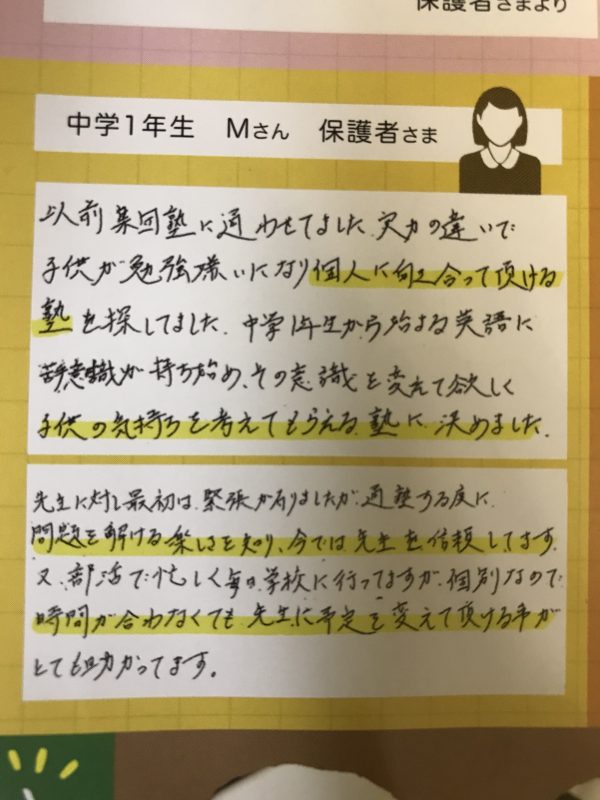 保護者さまより
中学1年生 Mさん 保護者さま
以前集団塾に通わせてました。実力の違いで
子供が勉強嫌いになり個人に向き合って頂ける
塾を探してました。中学1年生から始まる英語に
苦手意識が持ち始め、その意識を変えて欲しく
子供の気持ちを考えてもらえる塾に決めました。
先生に対し最初は緊張が有りましたが通塾する度に
問題を解ける楽しさを知り、今では先生を信頼してます。
又、部活で忙しく毎日学校に行ってますが、個別なので
時間が合わなくても先生に予定を変えて頂ける事が
とても助かってます。